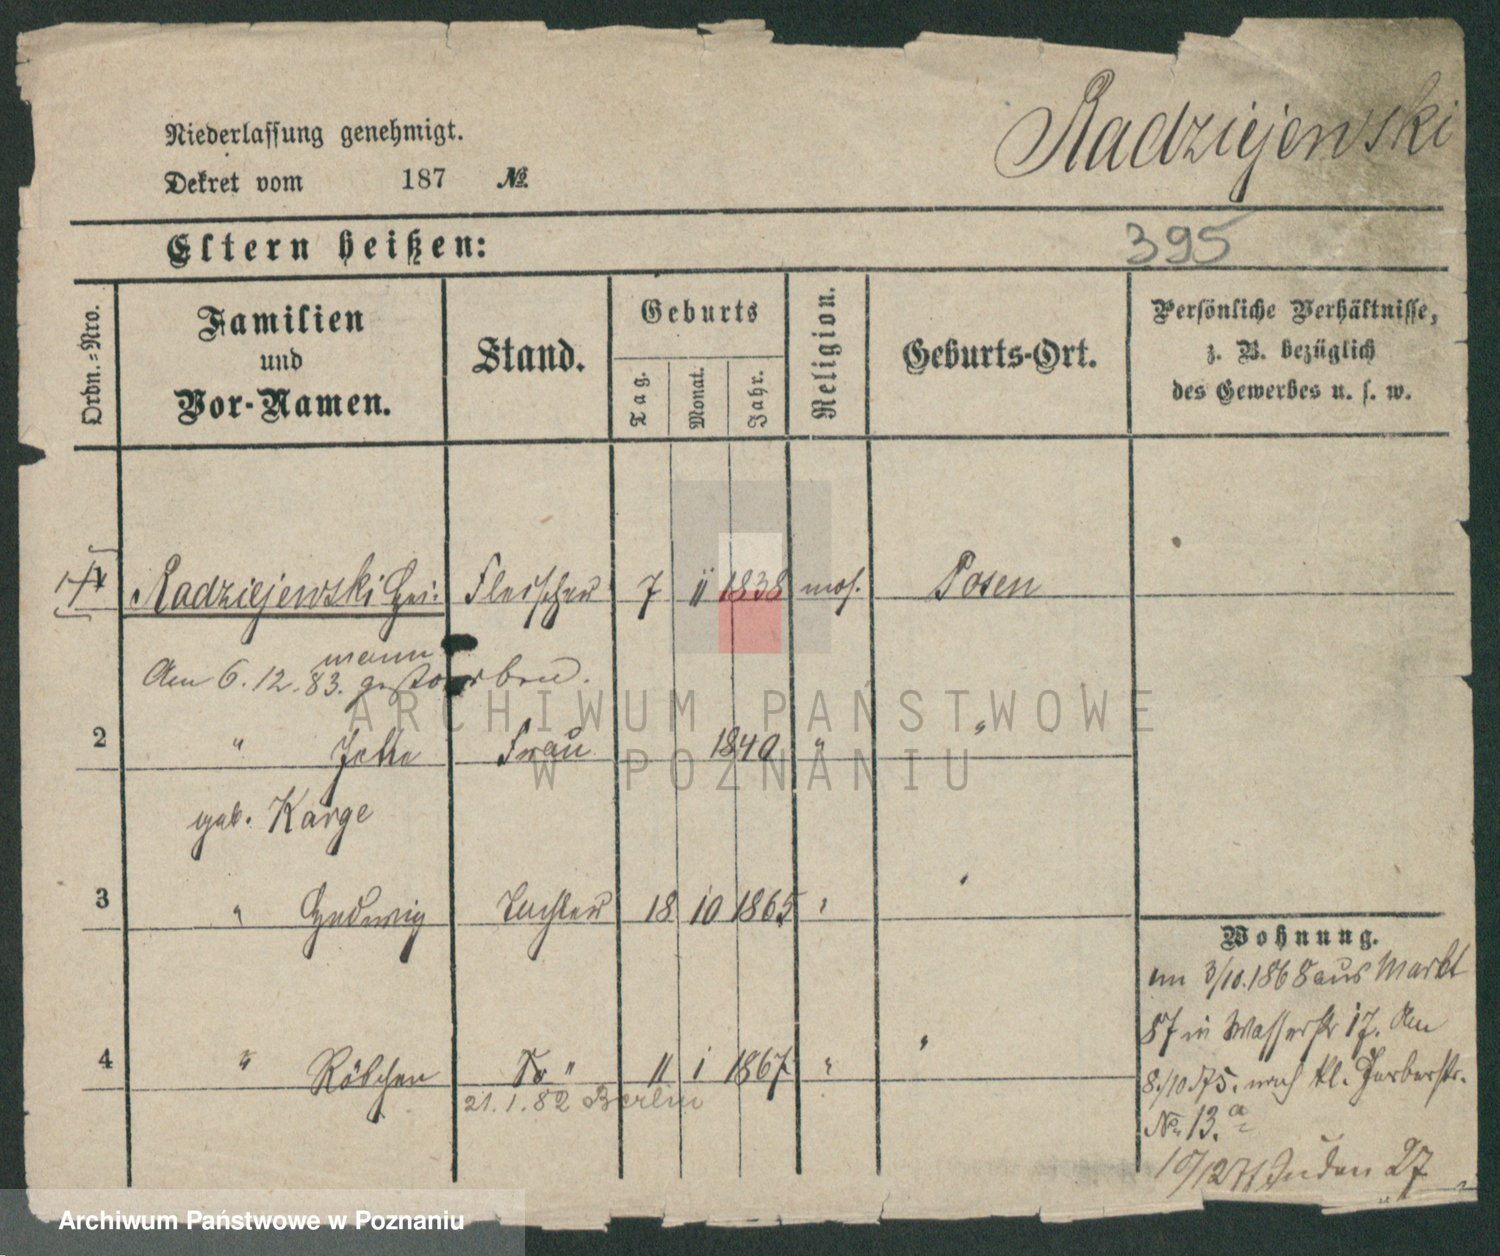 Radziejewski
Niederlassung genehmigt.
Dekret vom 187 №
Eltern heißen:
395
Ordn.=Nro.
Familien
und
Vor-Namen.
Stand.
Geburts
Tag.
Monat.
Jahr.
Religion.
Geburts-Ort.
Persönliche Verhältnisse,
z. B. bezüglich
des Gewerbes u. s. w.
1 Radziejewski Hei: Fleischer 7 11 1838 mos. Posen
mann
Am 6.12.83. gestorben.
2 " Jette Frau 1840 " "
geb. Karge
3 " Hedwig Tochter 18 10 1865 "
4 " Röschen To " 11 1 1867 " "
21.1.82 Berlin
Wohnung.
am 3/10.1868 aus Markt
87 in Wasserstr 17. Am
8./10.75. nach kl. Gerberstr.
No. 13.a
10/12 Juden 27
ARCHIWUM PAŃSTWOWE
W POZNANIU
Archiwum Państwowe w Poznaniu